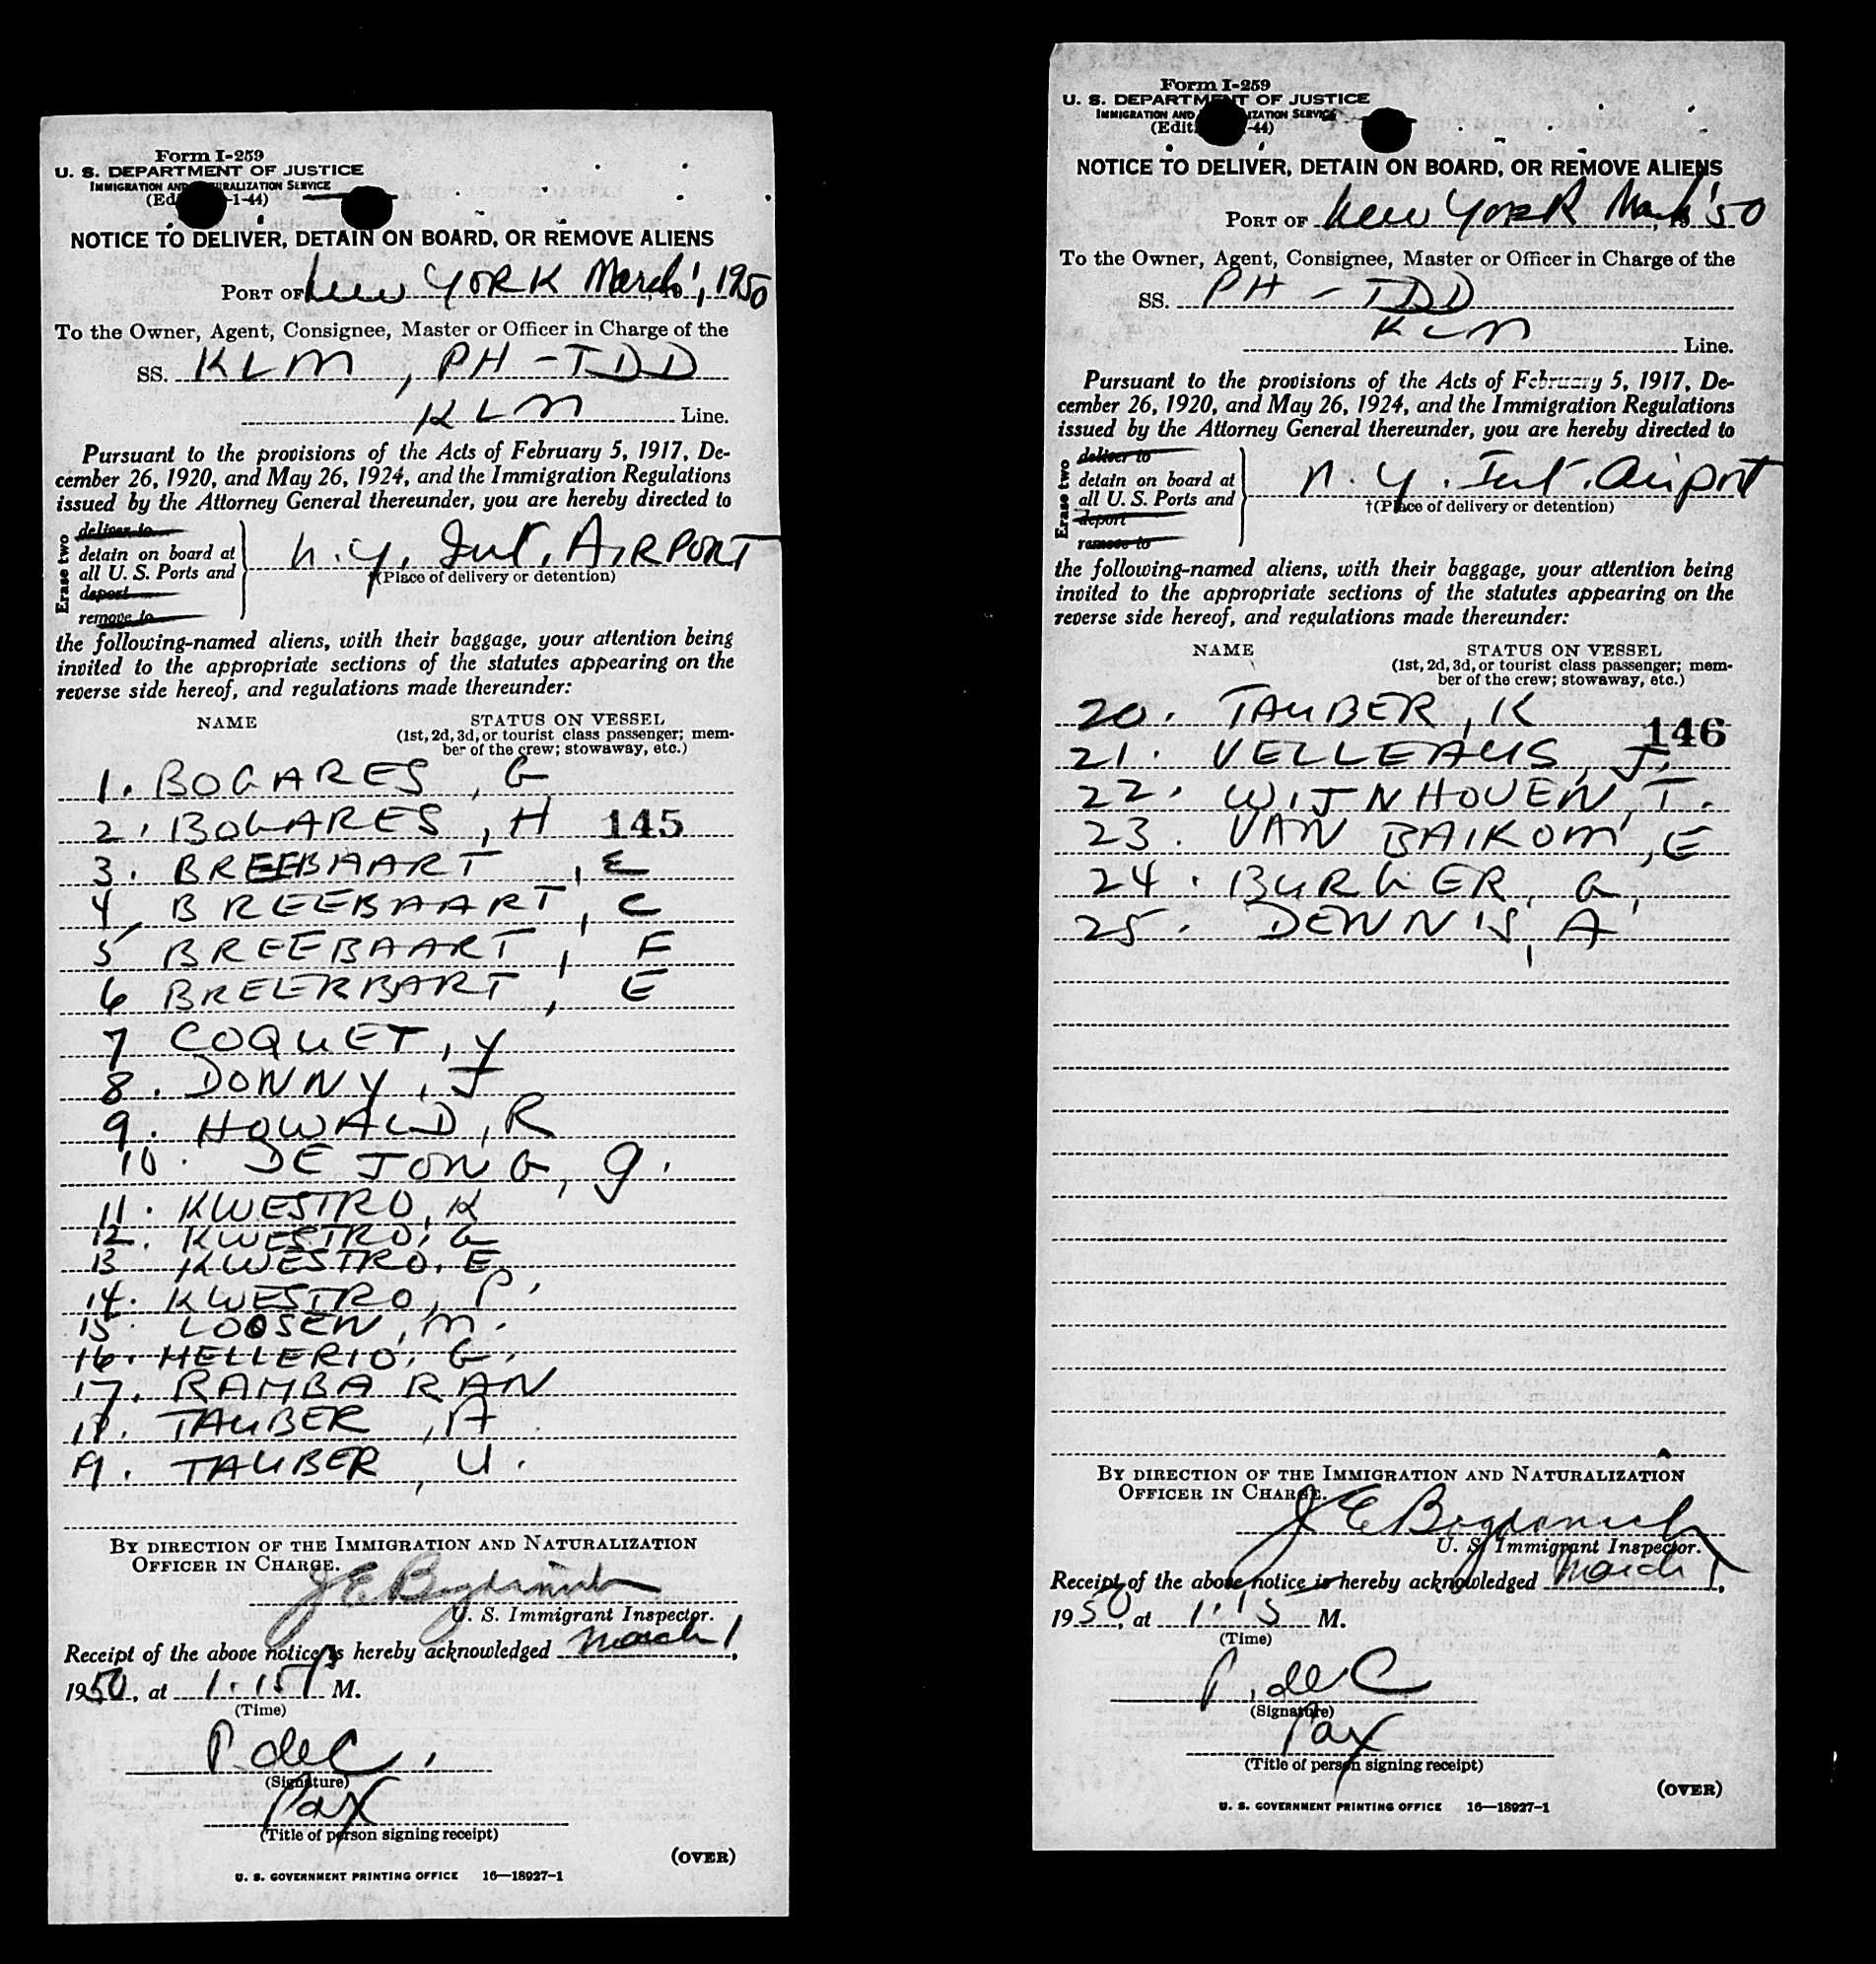 Form I-259
U. S. DEPARTMENT OF JUSTICE
IMMIGRATION AND NATURALIZATION SERVICE
(Ed 1-44)
NOTICE TO DELIVER, DETAIN ON BOARD, OR REMOVE ALIENS
PORT OF New YORK March 1, 1950
To the Owner, Agent, Consignee, Master or Officer in Charge of the
SS. KLM, PH-TDD
KLM Line.
Pursuant to the provisions of the Acts of February 5, 1917, De-
cember 26, 1920, and May 26, 1924, and the Immigration Regulations
issued by the Attorney General thereunder, you are hereby directed to
Erase two
deliver to
detain on board at
all U. S. Ports and
deport
remove to
N.Y. Int. AIRPORT
†(Place of delivery or detention)
the following-named aliens, with their baggage, your attention being
invited to the appropriate sections of the statutes appearing on the
reverse side hereof, and regulations made thereunder:
NAME
STATUS ON VESSEL
(1st, 2d, 3d, or tourist class passenger; mem-
ber of the crew; stowaway, etc.)
1. BOGARES, G
2. BOGARES, H 145
3. BREEBAART, E
4. BREEBAART, C
5 BREEBAART, F
6 BREERBART, E
7 COQUET, Y
8. DONNY, J
9. HOWALD, R
10. DE JONG, G.
11. KWESTRO, K
12. KWESTRO, G
13 KWESTRO, E
14. KWESTRO, P.
15. LOOSEN, M.
16. HELLERIO, G.
17. RAMBA RAN
18. TAUBER, A
19. TAUBER, U.
BY DIRECTION OF THE IMMIGRATION AND NATURALIZATION
OFFICER IN CHARGE.
J E Bogdanich
U. S. Immigrant Inspector.
Receipt of the above notice is hereby acknowledged March 1,
1950, at 1:15 P M.
(Time)
P. de C.
(Signature)
Pax
(Title of person signing receipt)
(OVER)
U. S. GOVERNMENT PRINTING OFFICE 16—18927-1
Form I-259
U. S. DEPARTMENT OF JUSTICE
IMMIGRATION AND NATURALIZATION SERVICE
(Edit. -44)
NOTICE TO DELIVER, DETAIN ON BOARD, OR REMOVE ALIENS
PORT OF New YORK March 1 '50
To the Owner, Agent, Consignee, Master or Officer in Charge of the
SS. PH-TDD
KLM Line.
Pursuant to the provisions of the Acts of February 5, 1917, De-
cember 26, 1920, and May 26, 1924, and the Immigration Regulations
issued by the Attorney General thereunder, you are hereby directed to
Erase two
deliver to
detain on board at
all U. S. Ports and
deport
remove to
N. Y. Int. Airport
†(Place of delivery or detention)
the following-named aliens, with their baggage, your attention being
invited to the appropriate sections of the statutes appearing on the
reverse side hereof, and regulations made thereunder:
NAME
STATUS ON VESSEL
(1st, 2d, 3d, or tourist class passenger; mem-
ber of the crew; stowaway, etc.)
20. TAUBER, K
146
21. VELLEAUS, J.
22. WIJNHOVEN, T.
23. VAN BAIKOM, E
24. BURGER, G,
25. DENNIS, A
BY DIRECTION OF THE IMMIGRATION AND NATURALIZATION
OFFICER IN CHARGE.
J E Bogdanich
U. S. Immigrant Inspector.
Receipt of the above notice is hereby acknowledged March 1,
1950, at 1:15 M.
(Time)
P. de C
(Signature)
Pax
(Title of person signing receipt)
(OVER)
U. S. GOVERNMENT PRINTING OFFICE 16—18927-1